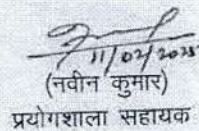 11/02/2025
(नवीन कुमार)
प्रयोगशाला सहायक